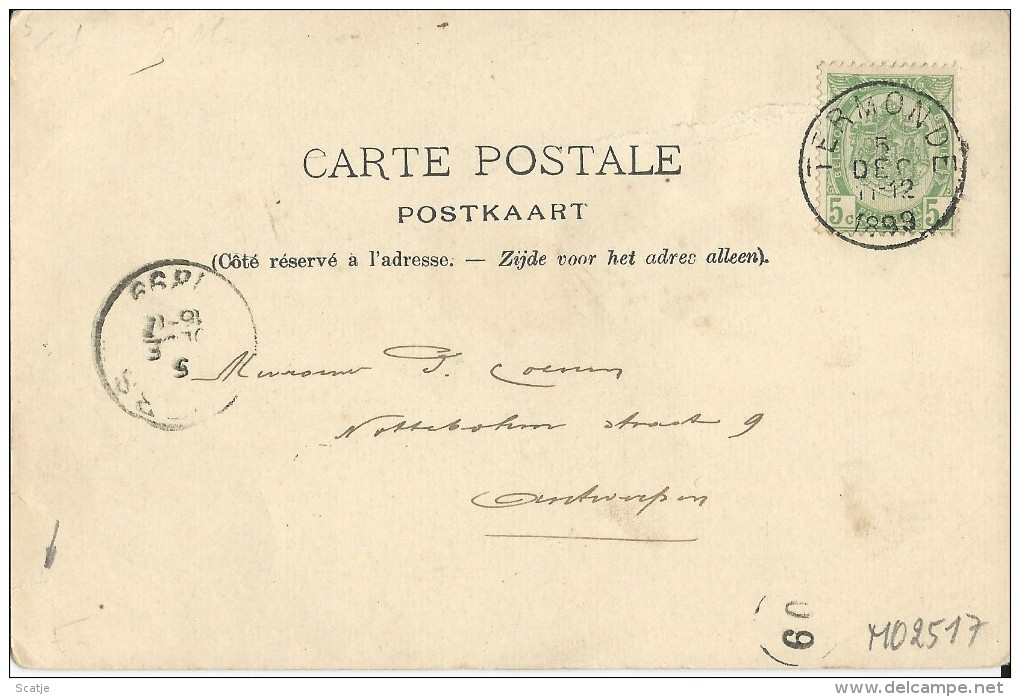 TERMONDE
5
DEC
11-12
1899
5 C 5
CARTE POSTALE
POSTKAART
(Côté réservé à l'adresse. — Zijde voor het adres alleen).
1899
16-17
5
Mevrouw J. Coenen
Nottebohm straat 9
Antwerpen
60
M02517
Scatje
delcampe.net